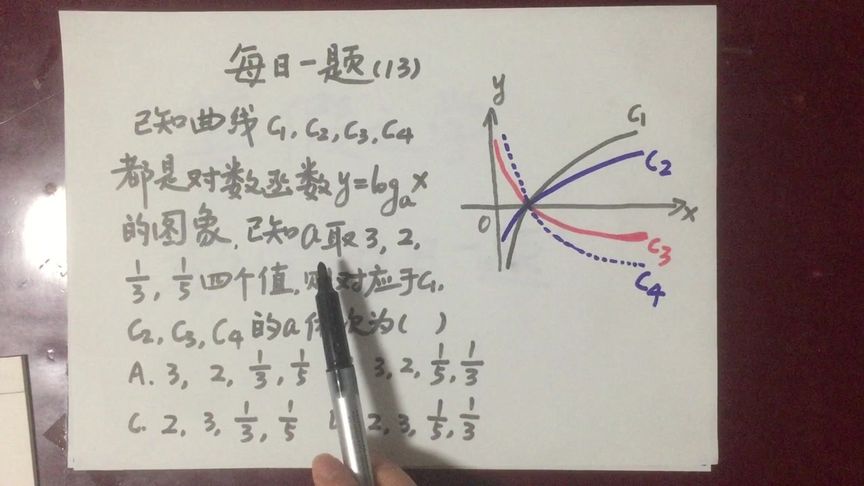 每日一题(13)
已知曲线 C₁, C₂, C₃, C₄
都是对数函数 y=logₐx
的图象,已知a取3, 2,
1/3, 1/5 四个值,则对应于C₁.
C₂, C₃, C₄ 的a依次为( )
A. 3, 2, 1/3, 1/5 3, 2, 1/5, 1/3
C. 2, 3, 1/3, 1/5 2, 3, 1/5, 1/3
y
C₁
C₂
0
x
C₃
C₄